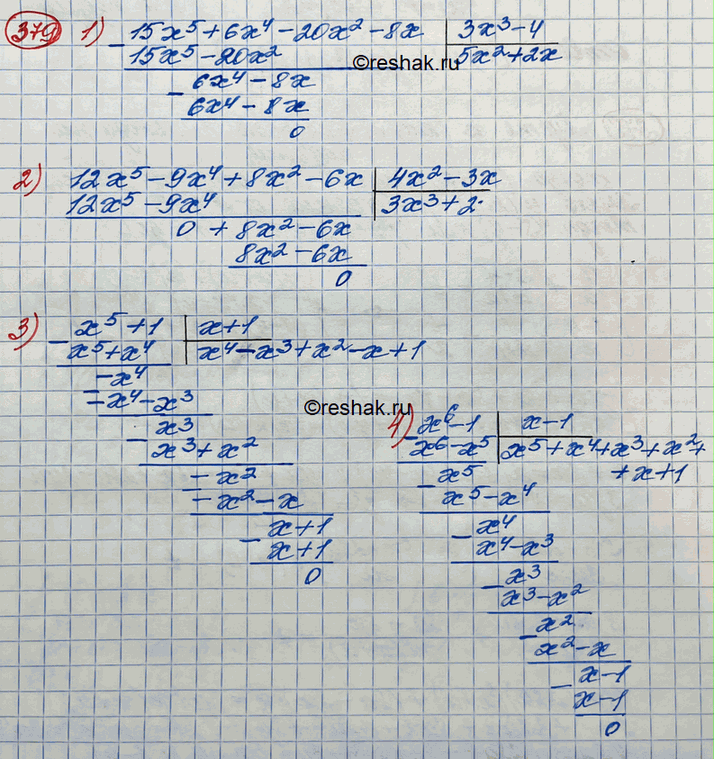 379 1) - 15x⁵ + 6x⁴ - 20x² - 8x | 3x³ - 4
15x⁵ - 20x² | 5x² + 2x
©reshak.ru
- 6x⁴ - 8x
6x⁴ - 8x
0
2) 12x⁵ - 9x⁴ + 8x² - 6x | 4x² - 3x
12x⁵ - 9x⁴ | 3x³ + 2
0 + 8x² - 6x
8x² - 6x
0
3) - x⁵ + 1 | x + 1
x⁵ + x⁴ | x⁴ - x³ + x² - x + 1
- - x⁴
- x⁴ - x³
- x³
x³ + x²
- - x²
- x² - x
- x + 1
x + 1
0
©reshak.ru
4) - x⁶ - 1 | x - 1
x⁶ - x⁵ | x⁵ + x⁴ + x³ + x² +
+ x + 1
- x⁵
x⁵ - x⁴
- x⁴
x⁴ - x³
- x³
x³ - x²
- x²
x² - x
- x - 1
x - 1
0